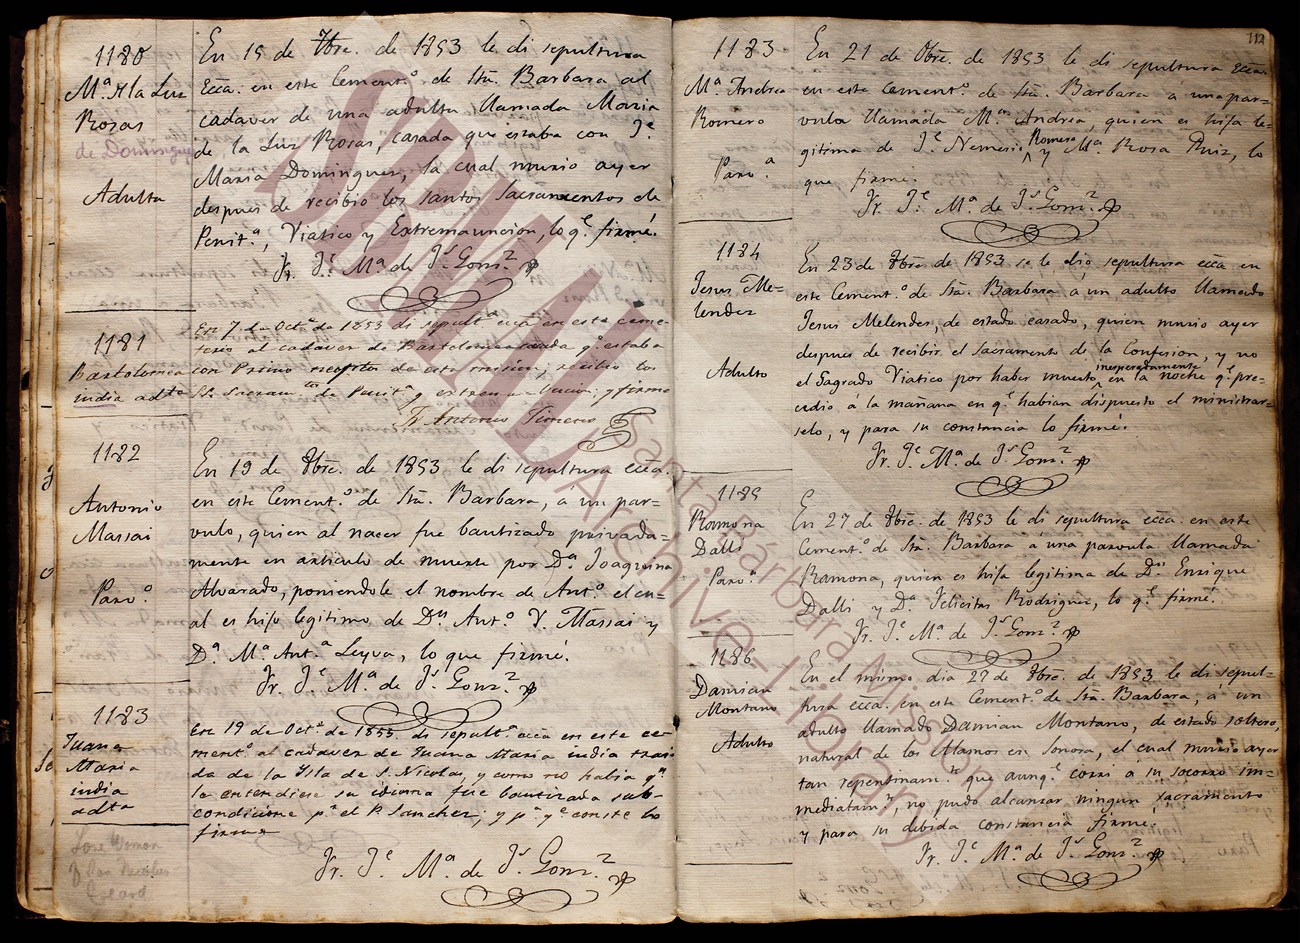 1180
Mª. de la Luz
Rosas
de Dominguez
Adulta
En 15 de 7bre. de 1853 le di sepultura
ecca. en este Cement.º de Sta. Barbara al
cadaver de una adulta llamada Maria
de la Luz Rosas, casada que estaba con J.e
Maria Dominguez, la cual murio ayer
despues de recibio los santos Sacramentos de
Penit.ª, Viatico y Extremauncion, lo q.e firmé.
Fr. J.e M.ª de J.s Gonz.z
1181
Bartolomea
india adta
En 7 de Oct.e de 1853 di sepult.ª ecca en este cime-
terio al cadaver de Bartolomea casada q.e estaba
con Primo neofito de esta mision; recibio los
SS. Sacram.tos de Penit.ª y extrem uncion; y firme
Fr Antonio Jimeno
1182
Antonio
Massai
Parv.º
En 19 de 8bre. de 1853 le di sepultura ecca.
en este Cement.º de Sta. Barbara, a un par=
vulo, quien al nacer fue bautizado privada=
mente en articulo de muerte por D.ª Joaquina
Alvarado, poniendole el nombre de Ant.º el cu=
al es hijo legitimo de Dn Ant.º V. Massai y
D.ª M.ª Ant.ª Leyva, lo que firmé.
Fr. J.e M.ª de J.s Gonz.z
1183
Juana
Maria
india
adta
En 19 de Oct.e de 1853 di sepult.ª ecca en este ce-
ment.º al cadaver de Juana Maria india trai-
da de la Isla de S. Nicolas, y como no habia q.n
la entendiese su idioma fue bautizada sub-
condicione p.r el P. Sanchez; y p.ª q.e conste lo
firme
Fr. J.e M.ª de J.s Gonz.z
Lone Woman
of San Nicolas
Island
112
1183
M.ª Andrea
Romero
Parv.ª
En 21 de 8bre. de 1853 le di sepultura ecca.
en este Cement.º de Sta. Barbara a una par=
vula llamada M.ª Andrea, quien es hija le=
gitima de J.e Nemesio Romero y M.ª Rosa Ruiz, lo
que firmé.
Fr. J.e M.ª de J.s Gonz.z
1184
Jesus Me=
lendez
Adulto
En 23 de 8bre. de 1853 se le dio sepultura ecca en
este Cement.º de Sta. Barbara á un adulto llamado
Jesus Melendes, de estado casado, quien murio ayer
despues de recibir el Sacramento de la Confesion, y no
el Sagrado Viatico por haber muerto inesperadamente en la noche q.e pre=
cedio á la mañana en q.e habian dispuesto el ministrar=
selo, y para su constancia lo firmé.
Fr. J.e M.ª de J.s Gonz.z
1185
Ramona
Dalli
Parv.ª
En 27 de 8bre. de 1853 le di sepultura ecca. en este
Cement.º de Sta. Barbara á una parvula llamada
Ramona, quien es hija legitima de Dn. Enrique
Dalli y D.ª Felicitas Rodriguez, lo q.e firmé.
Fr. J.e M.ª de J.s Gonz.z
1186
Damian
Montano
Adulto
En el mismo dia 27 de 8bre. de 1853 le di sepul=
tura ecca. en este Cement.º de Sta. Barbara, á un
adulto llamado Damian Montano, de estado soltero,
natural de los Alamos en Sonora, el cual murio ayer
tan repentinam.te que aunq.e corri á su socorro im=
mediatam.te, no pudo alcanzar ningun sacramento
y para su debida constancia firmé.
Fr. J.e M.ª de J.s Gonz.z
SBMAL
Santa Bárbara Mission
Archive-Library